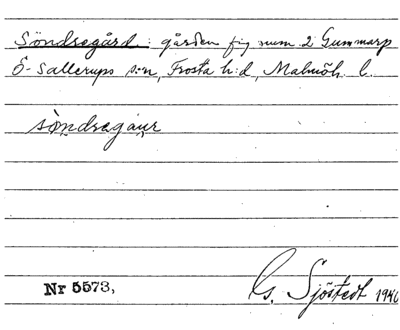 Söndregård: gården fig num 2 Gummarp
Ö. Sallerups s:n, Frosta h:d, Malmöh. l.
sön̥dregau̥r
Nr 5573,
G. Sjöstedt 1946